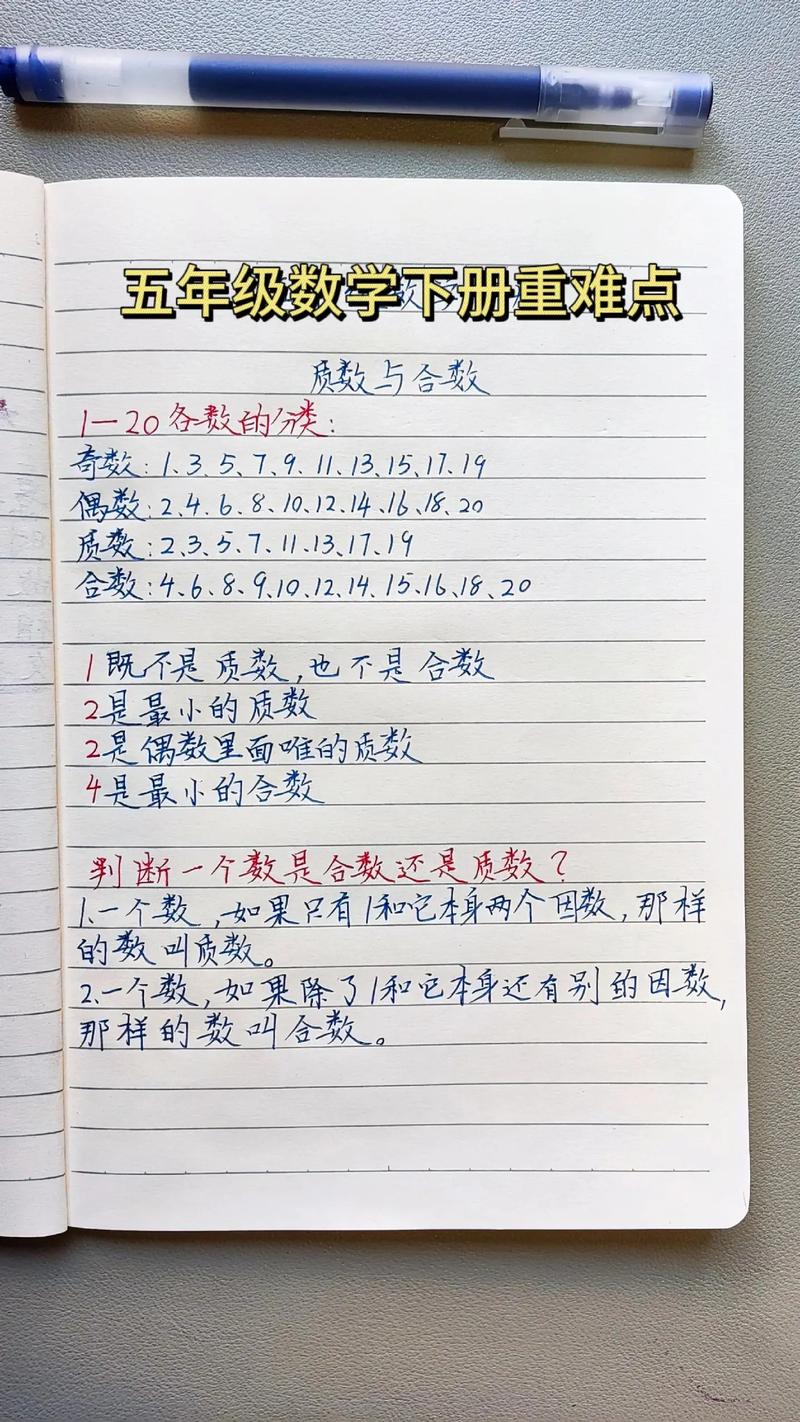 五年级数学下册重难点
质数与合数
1—20各数的分类:
奇数:1、3、5、7、9、11、13、15、17、19
偶数:2、4、6、8、10、12、14、16、18、20
质数:2、3、5、7、11、13、17、19
合数:4、6、8、9、10、12、14、15、16、18、20
1既不是质数,也不是合数
2是最小的质数
2是偶数里面唯的质数
4是最小的合数
判断一个数是合数还是质数?
1.一个数,如果只有1和它本身两个因数,那样
的数叫质数。
2.一个数,如果除了1和它本身还有别的因数,
那样的数叫合数。